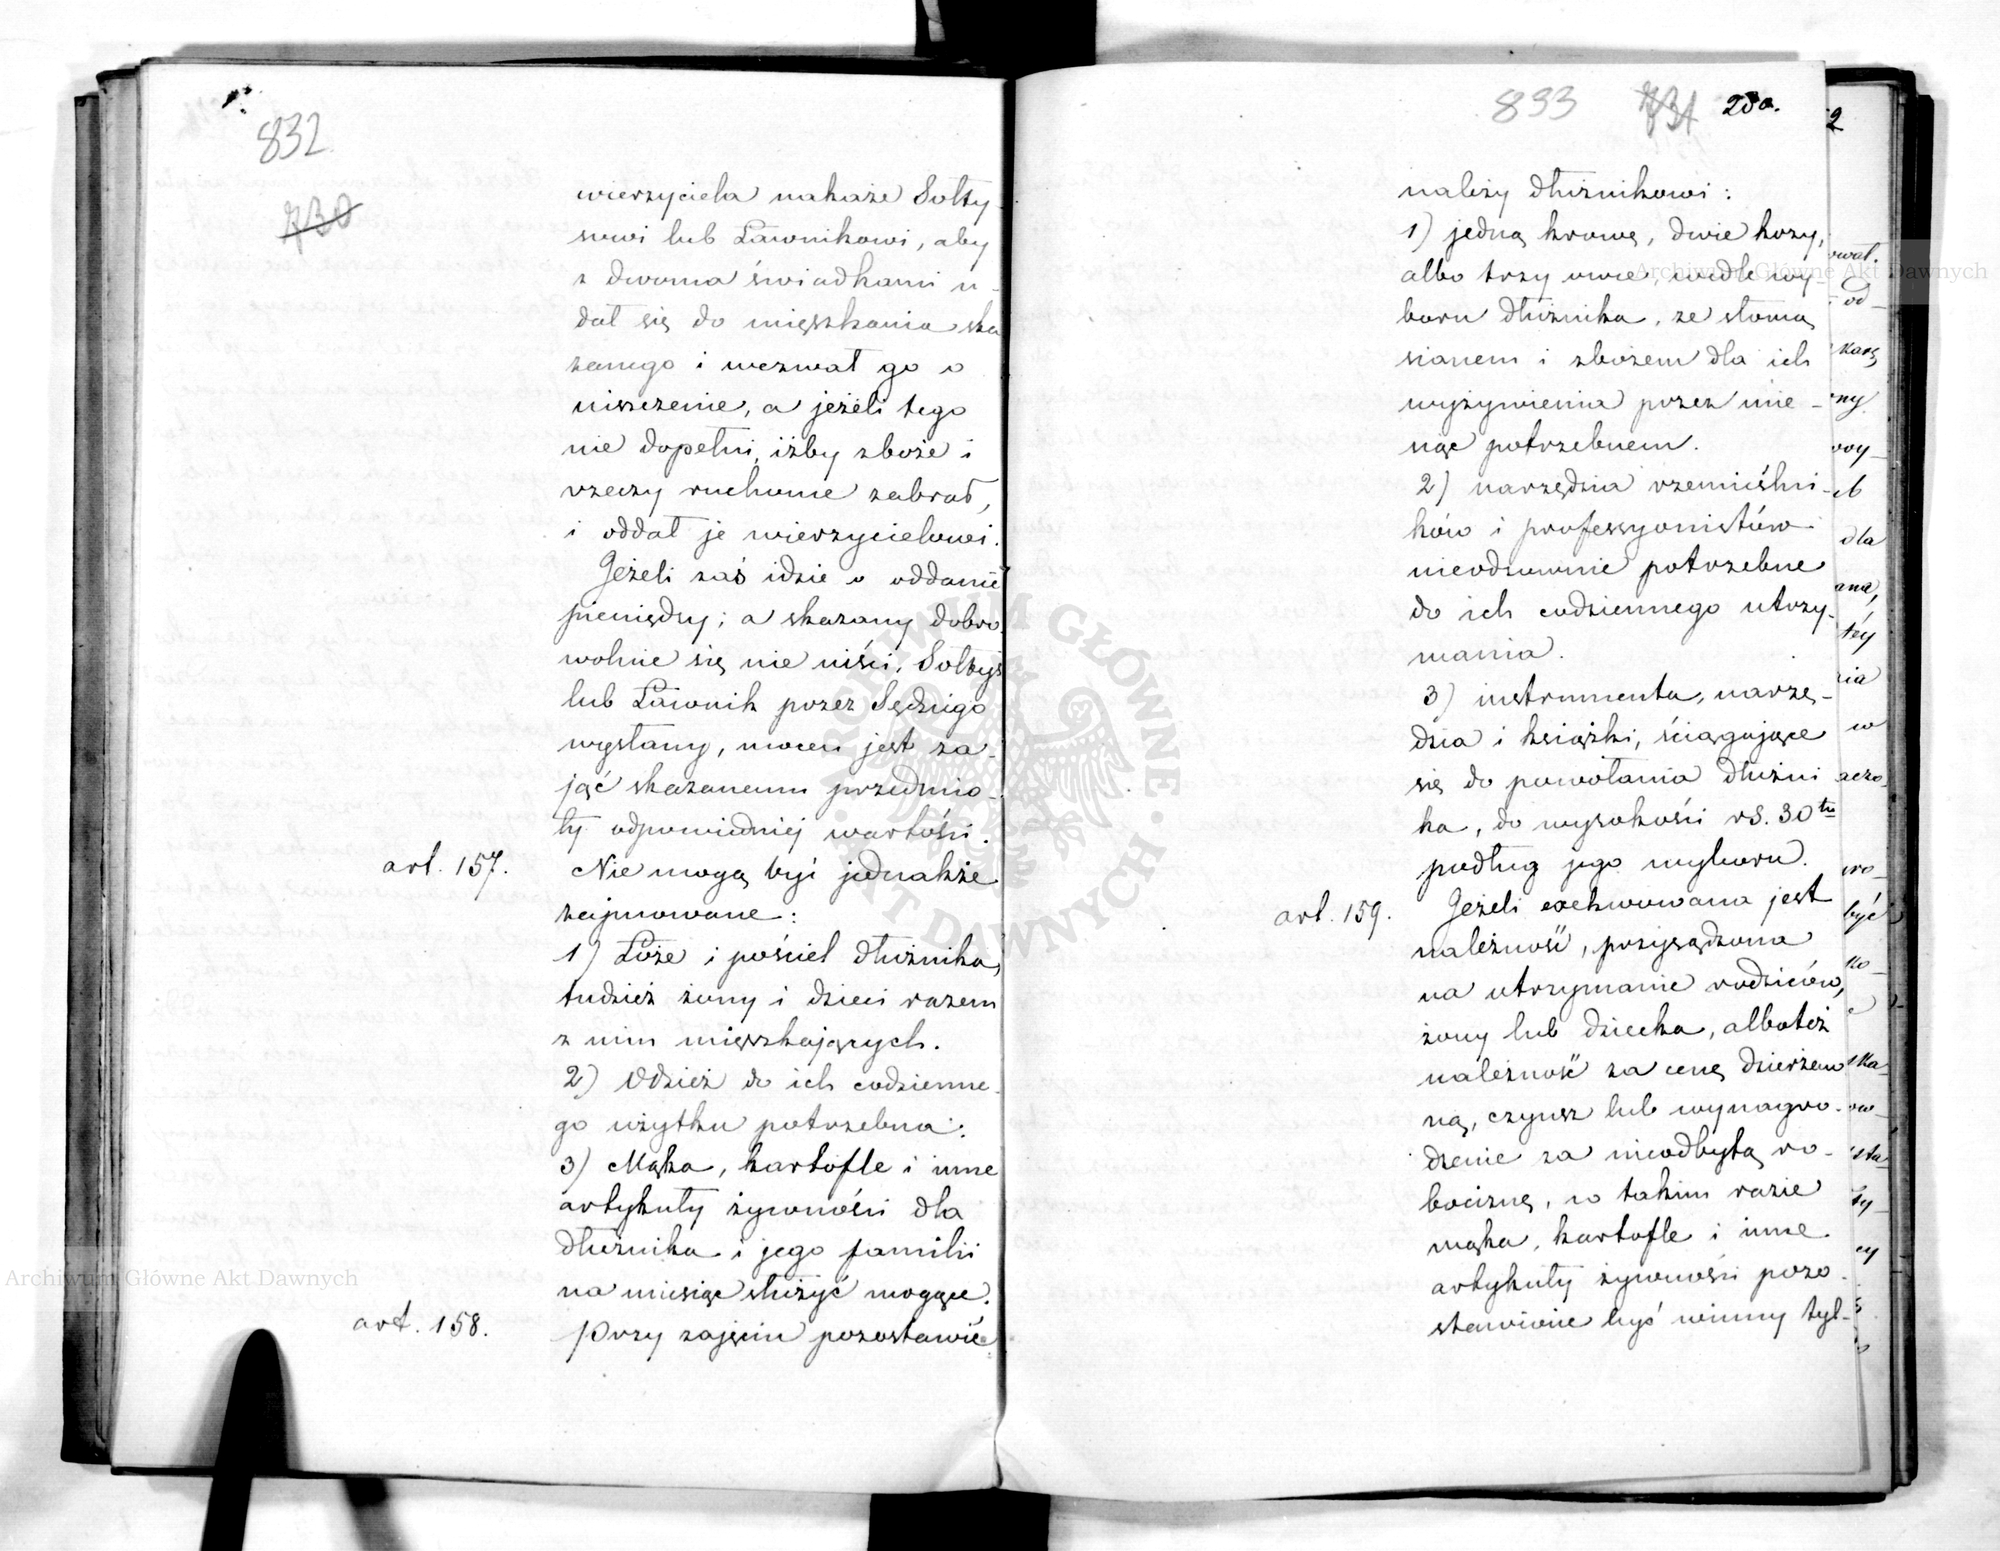 832
730
wierzyciela nakaże Sołty-
sowi lub Ławnikowi, aby
z dwoma świadkami u-
dał się do mięszkania ska
zanego i wezwał go o
uiszczenie, a jeżeli tego
nie dopełni, iżby zboże i
rzeczy ruchome zabrał,
i oddał je wierzycielowi.
Jeżeli zaś idzie o oddanie
pieniędzy; a skazany dobro-
wolnie się nie uiści, Sołtys
lub Ławnik przez Sędziego
wysłany, mocen jest za-
jąć skazanemu przedmio-
ty odpowiedniej wartości.
art. 157.
Nie mogą być jednakże
zajmowane:
1) Łóże i pościel dłużnika,
tudzież żony i dzieci razem
z nim mięszkających.
2) Odzież do ich codzienne-
go użytku potrzebna:
3) Mąka, kartofle i inne
artykuły żywności dla
dłużnika i jego familii
na miesiąc służyć mogące.
art. 158.
Przy zajęciu pozostawić
833
731
należy dłużnikowi:
1) jedną krowę, dwie kozy,
albo trzy owce, wedle wy-
boru dłużnika, ze słomą
sianem i zbożem dla ich
wyżywienia przez mie-
siąc potrzebnem.
2) narzędzia rzemieślni-
ków i professyonistów
nieodzownie potrzebne
do ich codziennego utrzy-
mania.
3) instrumenta, narzę-
dzia i książki, ściągające
się do powołania dłużni
ka, do wysokości rs. 30tu
podług jego wyboru.
art. 159.
Jeżeli exekwowana jest
należność, przysądzona
na utrzymanie rodziców,
żony lub dziecka, albo też
należność za cenę dzierżaw
ną, czynsz lub wynagro-
dzenie za nieodbytą ro-
bociznę, w takim razie
mąka, kartofle i inne
artykuły żywności pozo-
stawione być winny tyl-
Archiwum Główne Akt Dawnych
Archiwum Główne Akt Dawnych
ARCHIWUM GŁÓWNE
AKT DAWNYCH